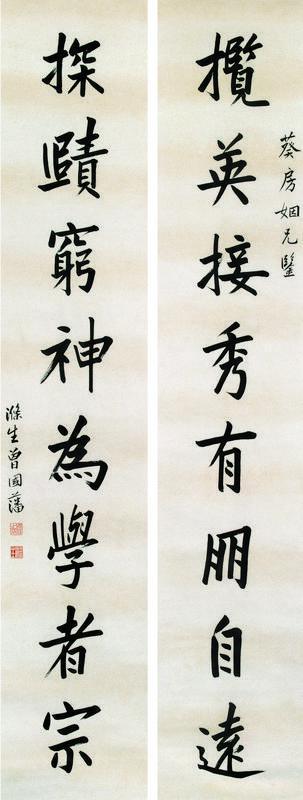 攬英接秀有朋自遠
葵房姻兄鑒
探賾窮神為學者宗
滌生曾國藩